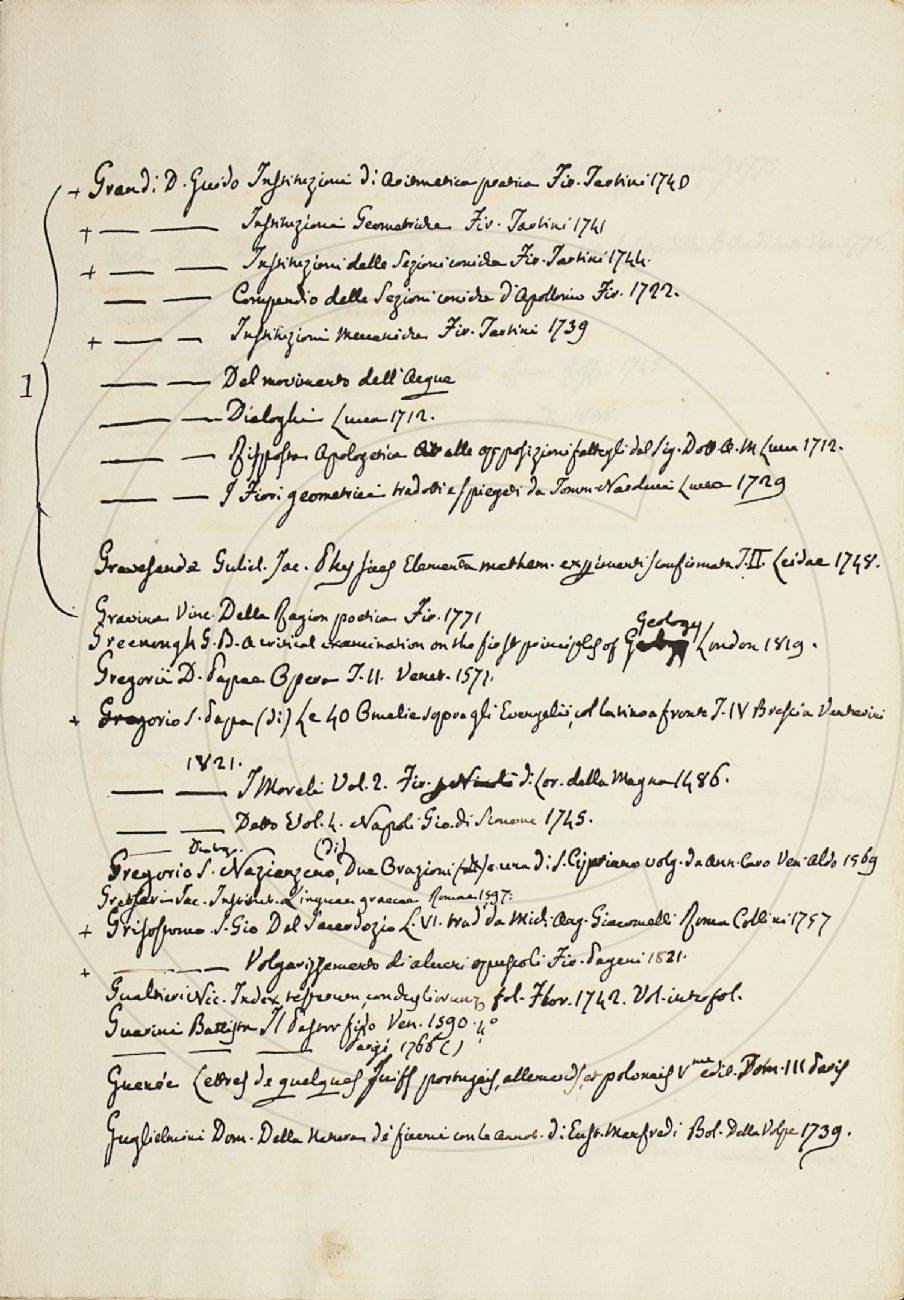 + Grandi D. Guido Instituzioni di Aritmetica pratica Fir. Tartini 1740
+ — — Instituzioni Geometriche Fir. Tartini 1741
+ — — Instituzioni delle Sezioni coniche Fir. Tartini 1744.
— — Compendio delle Sezioni coniche d'Apollonio Fir. 1722.
+ — — Instituzioni Meccaniche Fir. Tartini 1739
1
— — Del movimento dell'Acque
— — Dialoghi Lucca 1712.
— — Risposta Apologetica alle opposizioni fattegli dal Sig. Dott. A. M. Lucca 1712.
— — I Fiori geometrici tradotti e spiegati da Tomm. Narducci Lucca 1729
Gravesande Guliel. Jac. Physices Elementa mathem. experimentis confirmata T. II. Leidae 1748.
Gravina Vinc. Della Ragion poetica Fir. 1771
Greenough G. B. A critical examination on the first principles of Geology London 1819.
Gregorii D. Papae Opera T. II. Venet. 1571.
+ Gregorio S. Papa (di) Le 40 Omelie sopra gli Evangelii, col latino a fronte T. IV Brescia Venturini
1821.
— — I Morali Vol. 2. Fir. di Lor. della Magna 1486.
— — Detto Vol. 4. Napoli Gio. di Simone 1745.
Gregorio S. Nazianzeno, (di) Due Orazioni e una di S. Cipriano volg. da Ann. Caro Ven. Aldo 1569
Gretseri Jac. Institut. Linguae graecae Romae 1597.
+ Grisostomo S. Gio Del Sacerdozio L. VI. trad. da Mich. Ang. Giacomelli Roma Collini 1757
+ — — Volgarizzamento di alcuni opuscoli Fir. Pagani 1821.
Gualtieri Nic. Index testarum, conchyliorum fol. Flor. 1742. Vol. in tr. fol.
Guarini Battista Il Pastor fido Ven. 1590. 4°
— — — Parigi 1766
Guenée Lettres de quelques Juifs portugais, allemands, et polonais Vme edit. Tom. III Paris
Guglielmini Dom. Della Natura de' fiumi con le annot. di Eust. Manfredi Bol. Della Volpe 1739.